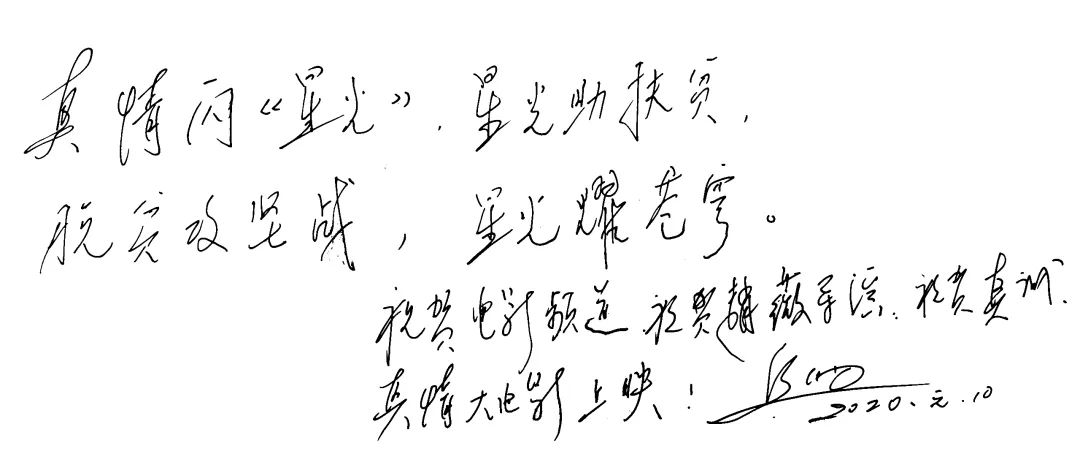 真情闪《星光》，星光助扶贫，
脱贫攻坚战，星光耀苍穹。
祝贺电影频道 祝贺韩薇导演、祝贺真诚、
真情大电影上映！
2020.元.10